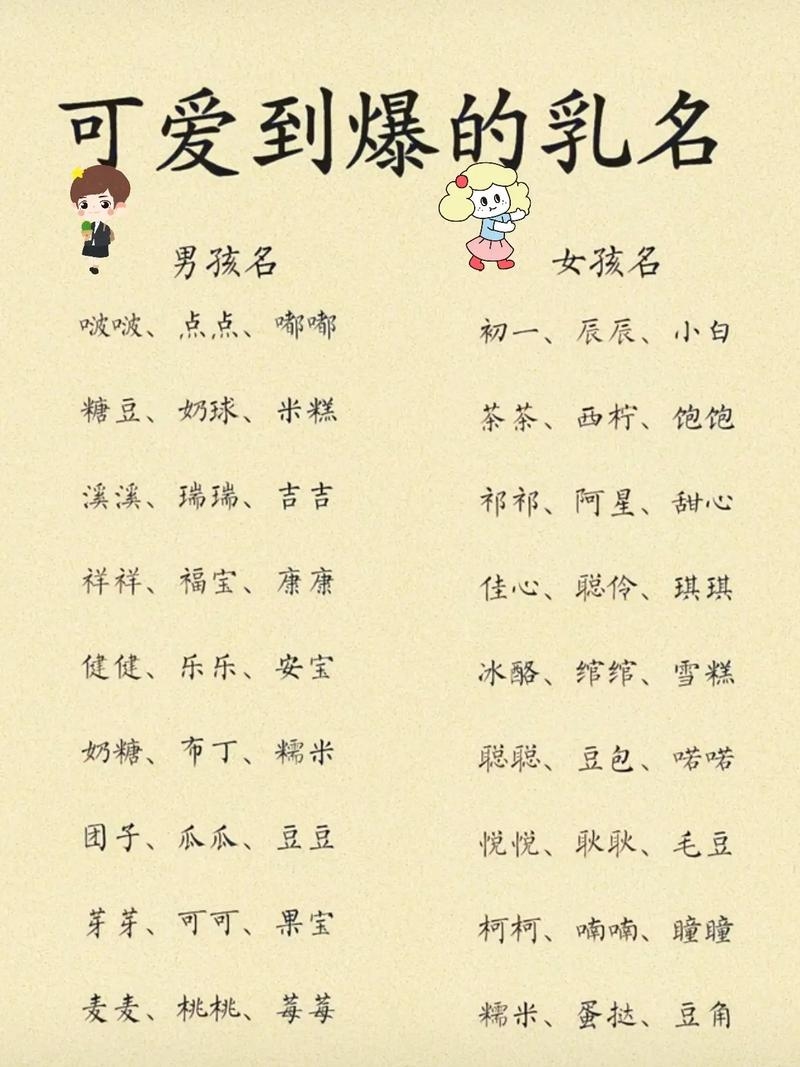 可爱到爆的乳名
男孩名
啵啵、点点、嘟嘟
糖豆、奶球、米糕
溪溪、瑞瑞、吉吉
祥祥、福宝、康康
健健、乐乐、安宝
奶糖、布丁、糯米
团子、瓜瓜、豆豆
芽芽、可可、果宝
麦麦、桃桃、莓莓
女孩名
初一、辰辰、小白
茶茶、西柠、饱饱
祁祁、阿星、甜心
佳心、聪伶、琪琪
冰酪、绾绾、雪糕
聪聪、豆包、喏喏
悦悦、耿耿、毛豆
柯柯、喃喃、瞳瞳
糯米、蛋挞、豆角